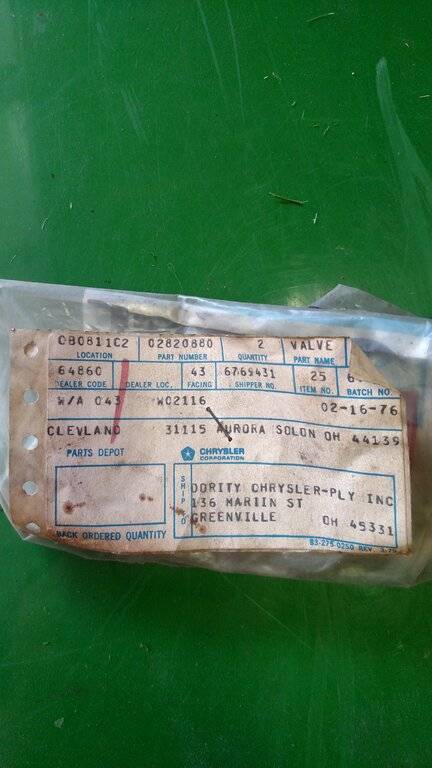 0B0811C2 02820880 2 VALVE
LOCATION PART NUMBER QUANTITY PART NAME
64860 43 6769431 25
DEALER CODE DEALER LOC. FACING SHIPPER NO. ITEM NO. BATCH NO.
W/A 043 W02116 02-16-76
CLEVLAND 31115 AURORA SOLON OH 44139
PARTS DEPOT CHRYSLER
CORPORATION
SHIP TO
DORITY CHRYSLER-PLY INC
136 MARIIN ST
GREENVILLE OH 45331
BACK ORDERED QUANTITY
83-275-0250 REV. 3.75